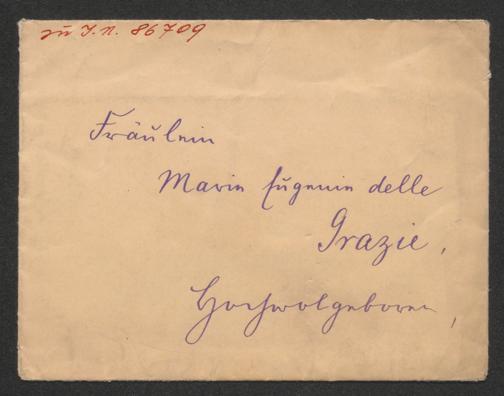 zu I.N. 86709
Fräulein
Marie Eugenie delle
Grazie,
Hochwolgeboren,